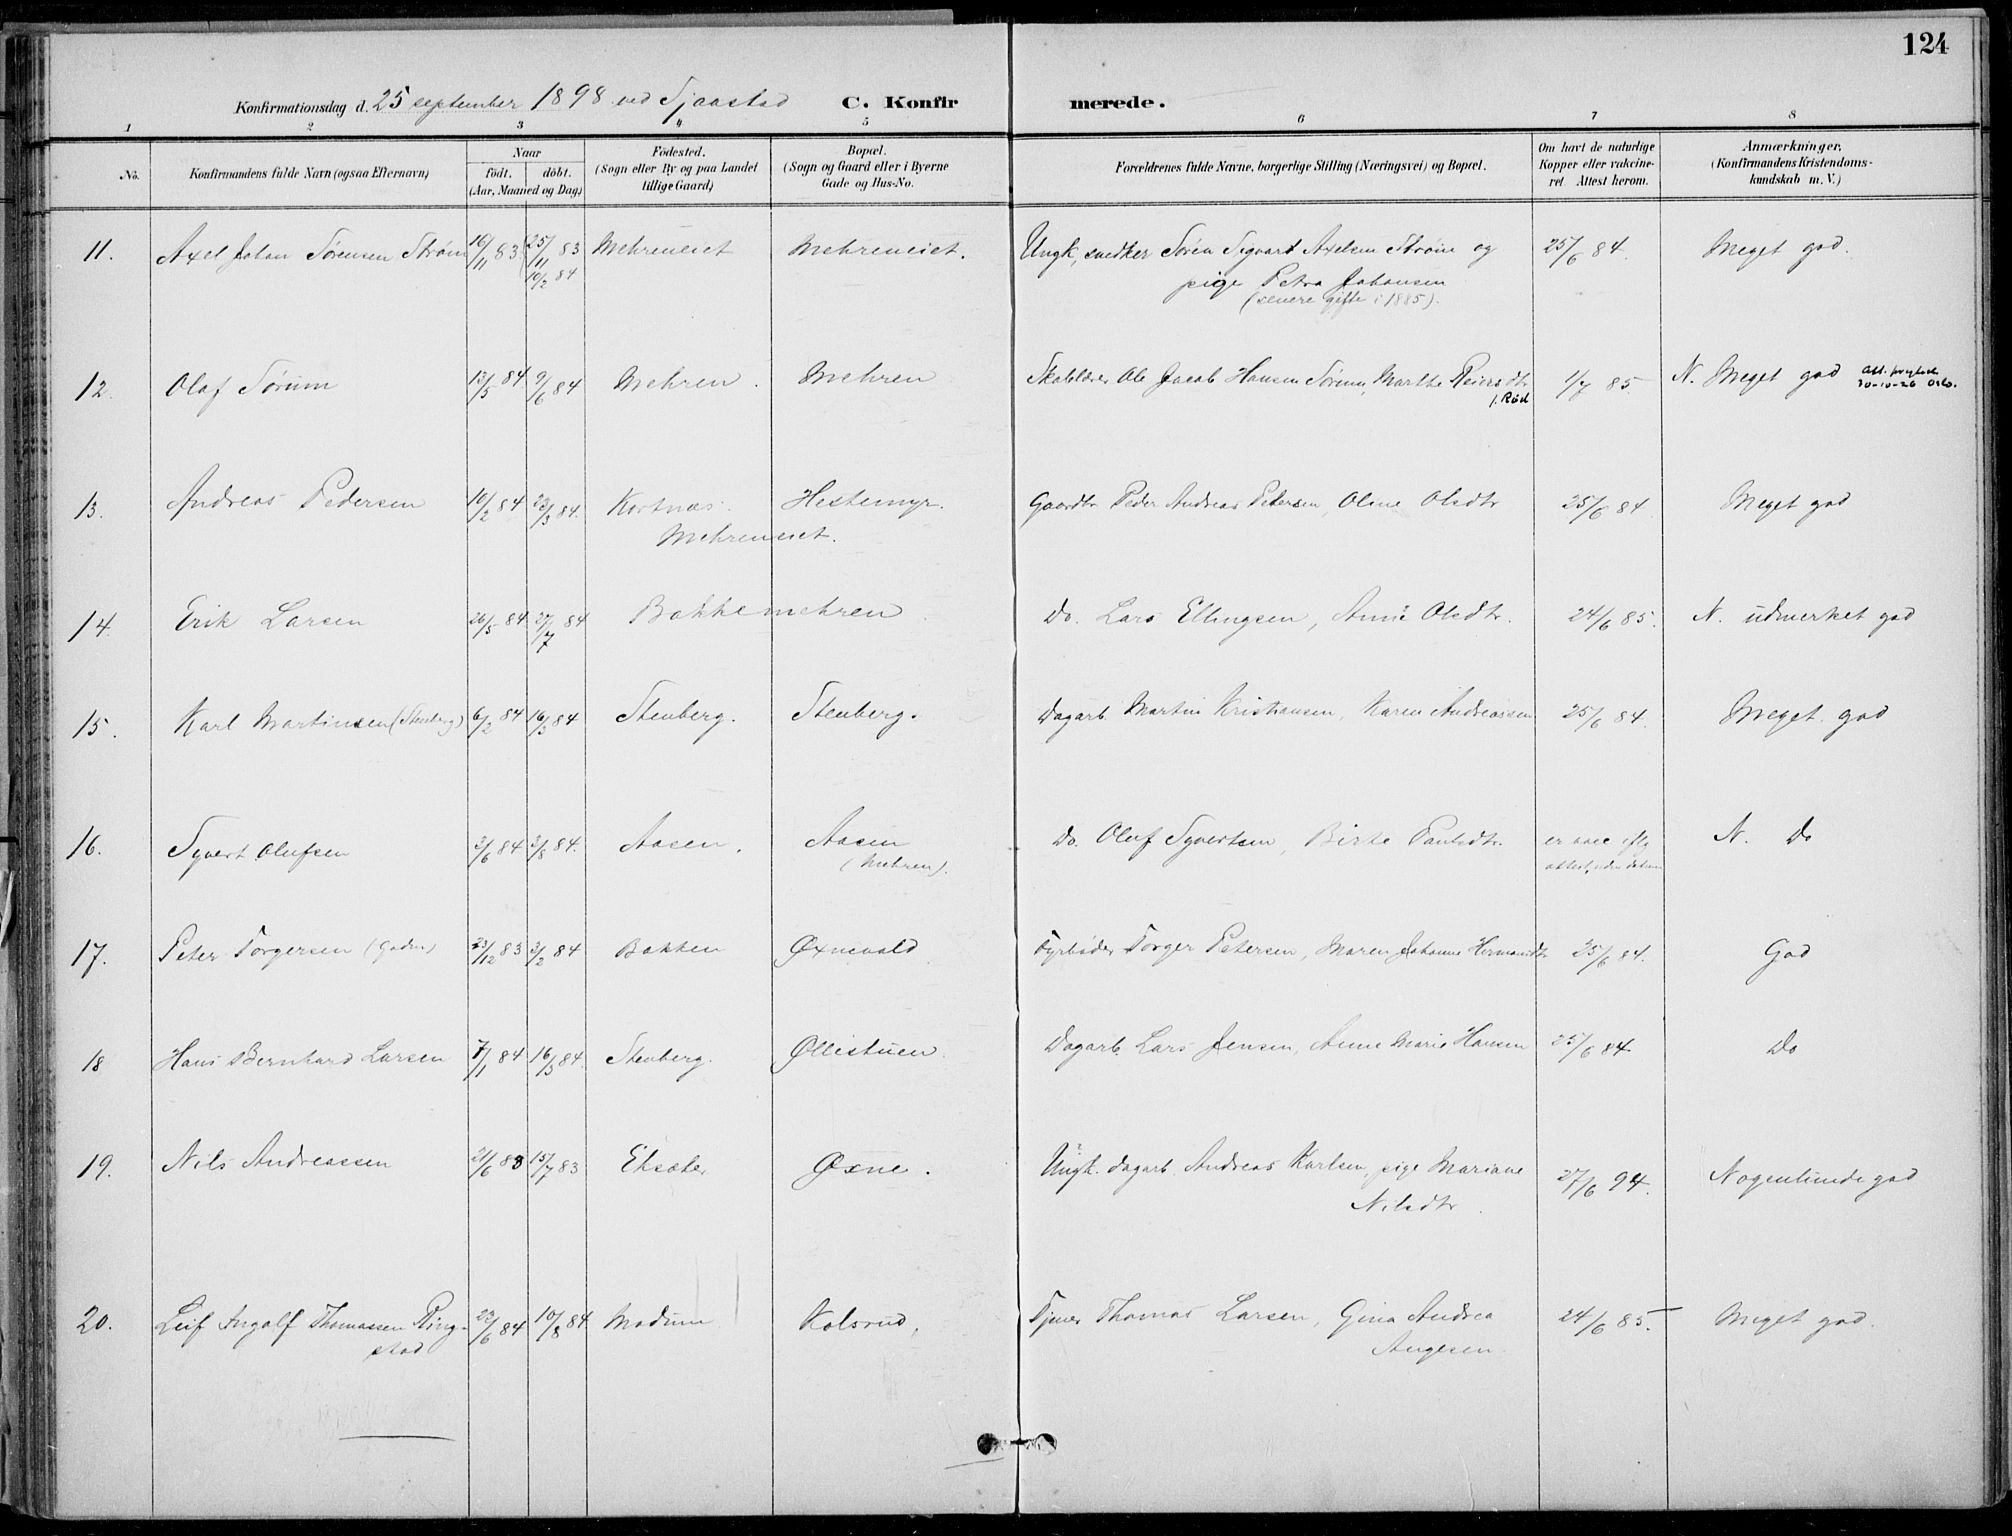 124
Konfirmationsdag d. 25 september 1898 ved Sjaastad C. Konfirmerede.
1 2 3 4 5 6 7 8
No. Konfirmandens fulde Navn (ogsaa Efternavn) Naar født. døbt. (Aar, Maaned og Dag) Fødested. (Sogn eller By og paa Landet tillige Gaard) Bopæl. (Sogn og Gaard eller i Byerne Gade og Hus-No. Forældrenes fulde Navne, borgerlige Stilling (Næringsvei) og Bopæl. Om havt de naturlige Kopper eller vakcineret. Attest herom. Anmærkninger, (Konfirmandens Kristendomskundskab m. V.)
11. Axel Johan Sørensen Strøm 16/11 83 25/11 83 Mehreneiet Mehreneiet. Ungk, snedker Søren Sigvart Axelsen Strøm og 25/6 84. Meget god.
10/2 84 pige Petra Johansen
(senere gifte i 1885).
12. Olaf Sørum 13/5 84 9/6 84 Mehren. Mehren Skolelærer Ole Jacob Hansen Sørum, Marthe Reiersdtr 1/7 85. N. Meget god
f. Rød 30-10-26 Oslo.
13. Andreas Pedersen 10/2 84 23/3 84. Kortnæs. Hestemyr. Gaardbr. Peder Andreas Petersen, Oline Olsdtr 25/6 84. Meget god
Mehreneiet.
14. Erik Larsen 26/5 84 27/7 84 Bakkemehren Do. Lars Ellingsen, Anne Olsdtr. 24/6 85. N. udmerket god
15. Karl Martinsen (Stenberg) 6/2 84 16/3 84 Stenberg. Stenberg. Dagarb. Martin Kristiansen, Karen Andreassen 25/6 84. Meget god
16. Syvert Olufsen 3/6 84 3/8 84. Aasen. Aasen Do. Oluf Syvertsen, Birte Paulsdtr. er vacc. iflg N. Do
(Mehren). attest, uden datum
17. Peter Torgersen 23/12 83 3/2 84 Bakken Øxnevald Fyrbøder Torger Petersen, Maren Johanne Hermansdtr 25/6 84. God
18 Hans Bernhard Larsen 7/1 84 16/3 84. Stenberg. Øllestuen. Dagarb. Lars Jensen, Anne Marie Hansen 25/6 84 Do
19. Nils Andreassen 21/6 83 15/7 83 Eksæter Øxne. Ungk. dagarb. Andreas Karlsen, pige Mariane 27/6 94. Nogenlunde god
Nilsdtr.
20. Leif Ingolf Thomassen Ring- 22/6 84 10/8 84 Modum Kolsrud, Tjener Thomas Larsen, Gina Andrea 24/6 85. Meget god.
stad Augesen.